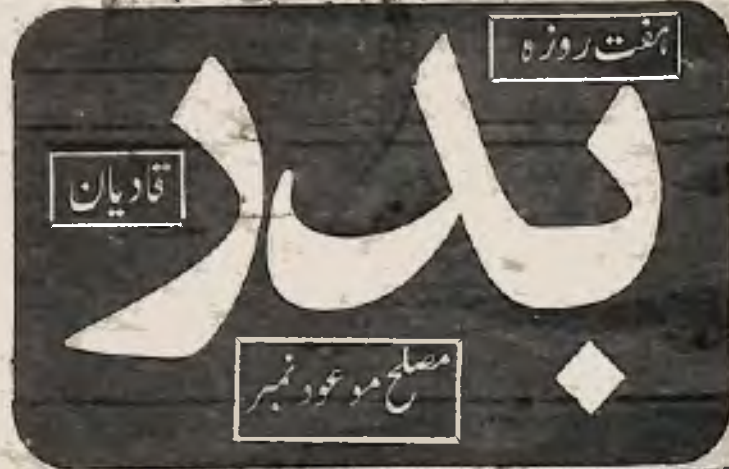 ہفت روزہ
بدر
قادیان
مصلح موعود نمبر